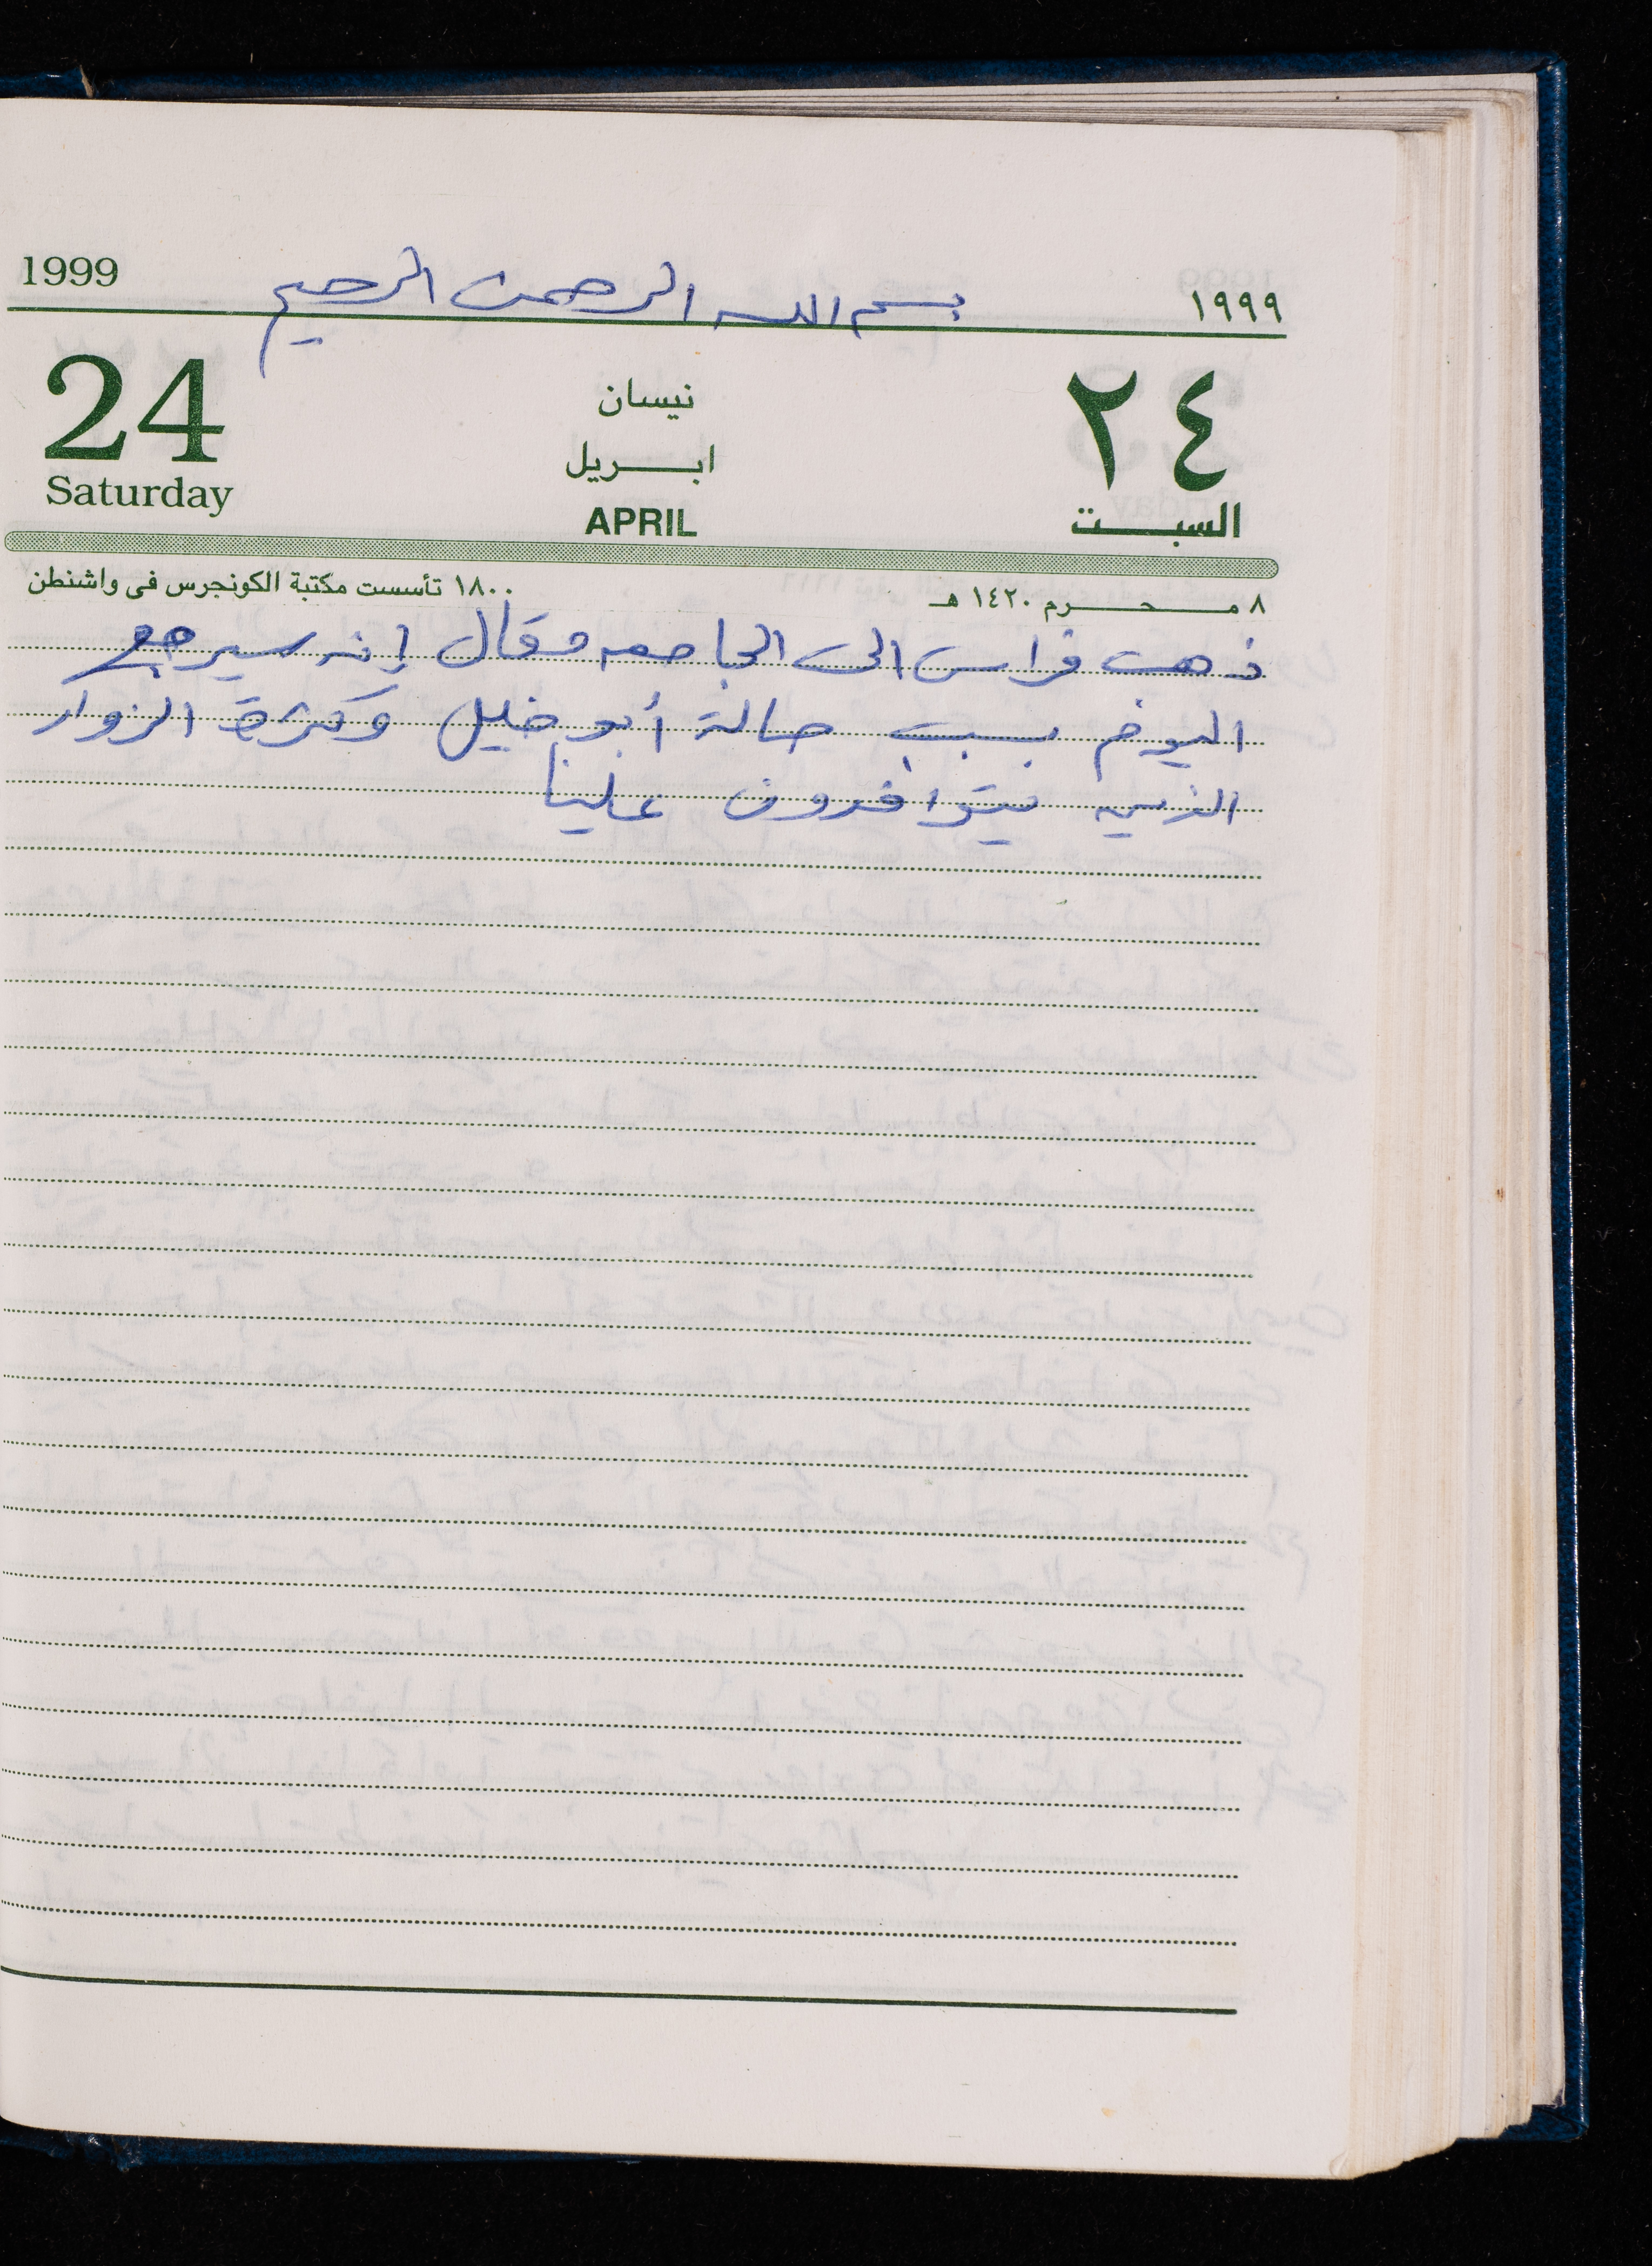 1999 بسم الله الرحمن الرحيم ١٩٩٩
24 نيسان ٢٤
ابريل
Saturday APRIL السبت
٨ محرم ١٤٢٠ هـ ١٨٠٠ تأسست مكتبة الكونجرس فى واشنطن
ذهب فراس الى الجامعه وقال إنه سيرجع
اليوم بسبب حالة أبو خليل وكثرة الزوار
الذين يتوافدون علينا